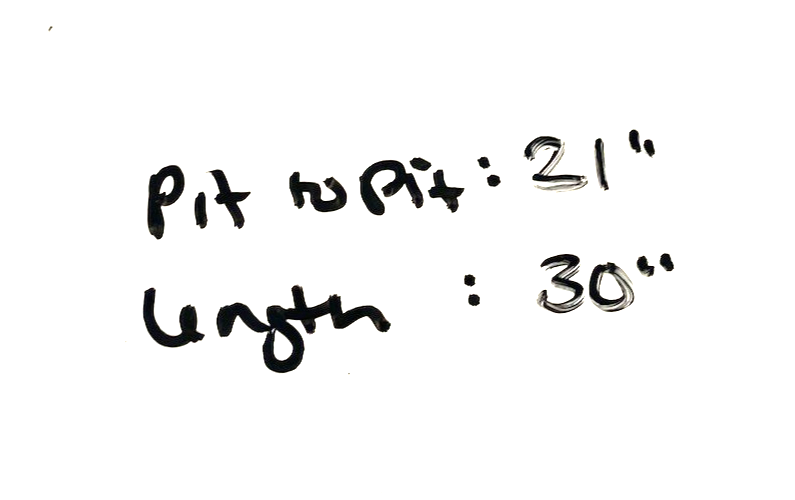 Pit to Pit: 21"
Length : 30"